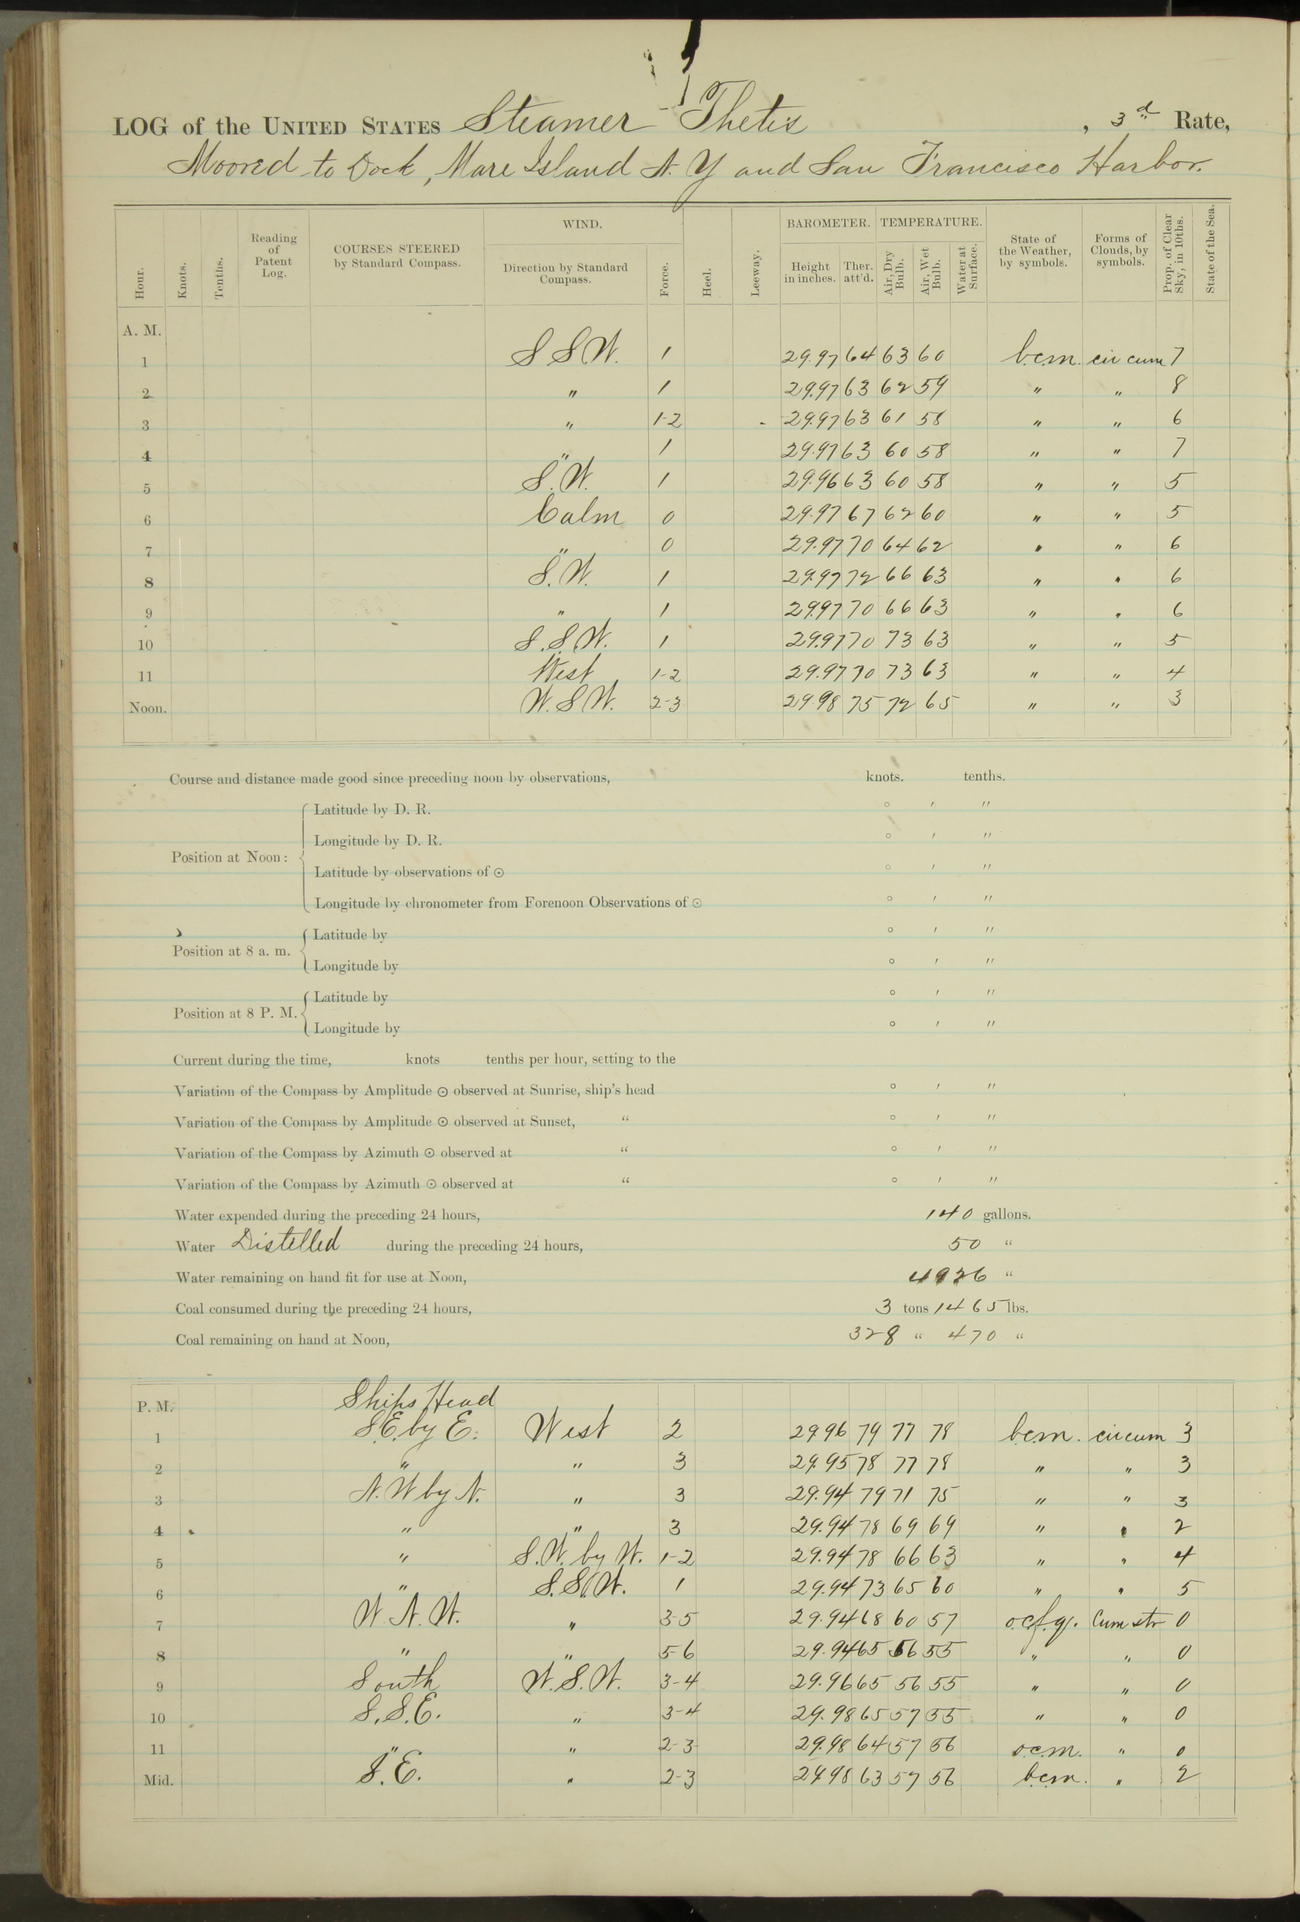 LOG of the UNITED STATES Steamer Thetis, 3d Rate,
Moored to Dock, Mare Island N. Y and San Francisco Harbor.
Hour. Knots. Tenths. Reading of Patent Log. COURSES STEERED by Standard Compass. WIND. Direction by Standard Compass. Force. Heel. Leeway. BAROMETER. Height in inches. Ther. att'd. TEMPERATURE. Air, Dry Bulb. Air, Wet Bulb. Water at Surface. State of the Weather, by symbols. Forms of Clouds, by symbols. Prop. of Clear Sky, in 10ths. State of the Sea.
A. M.
1 S S W. 1 29.97 64 63 60 b.c.m. cir cum 7
2 " 1 29.97 63 62 59 " " 8
3 " 1-2 29.97 63 61 58 " " 6
4 " 1 29.97 63 60 58 " " 7
5 S. W. 1 29.96 63 60 58 " " 5
6 Calm 0 29.97 67 62 60 " " 5
7 " 0 29.97 70 64 62 " " 6
8 S. W. 1 29.97 72 66 63 " " 6
9 " 1 29.97 70 66 63 " " 6
10 S. S. W. 1 29.97 70 73 63 " " 5
11 West 1-2 29.97 70 73 63 " " 4
Noon. W. S W. 2-3 29.98 75 72 65 " " 3
Course and distance made good since preceding noon by observations, knots. tenths.
Position at Noon: Latitude by D. R. ° ′ ″
Longitude by D. R. ° ′ ″
Latitude by observations of ⊙ ° ′ ″
Longitude by chronometer from Forenoon Observations of ⊙ ° ′ ″
Position at 8 a. m. Latitude by ° ′ ″
Longitude by ° ′ ″
Position at 8 P. M. Latitude by ° ′ ″
Longitude by ° ′ ″
Current during the time, knots tenths per hour, setting to the
Variation of the Compass by Amplitude ⊙ observed at Sunrise, ship's head ° ′ ″
Variation of the Compass by Amplitude ⊙ observed at Sunset, " ° ′ ″
Variation of the Compass by Azimuth ⊙ observed at " ° ′ ″
Variation of the Compass by Azimuth ⊙ observed at " ° ′ ″
Water expended during the preceding 24 hours, 140 gallons.
Water Distelled during the preceding 24 hours, 50 "
Water remaining on hand fit for use at Noon, 4926 "
Coal consumed during the preceding 24 hours, 3 tons 1465 lbs.
Coal remaining on hand at Noon, 328 " 470 "
P. M. Ships Head
1 S.E. by E. West 2 29.96 79 77 78 b.c.m. cir cum 3
2 " " 3 29.95 78 77 78 " " 3
3 N. W by N. " 3 29.94 79 71 75 " " 3
4 " " 3 29.94 78 69 69 " " 2
5 " S. W. by W. 1-2 29.94 78 66 63 " " 4
6 " S. S. W. 1 29.94 73 65 60 " " 5
7 W. N. W. " 3-5 29.94 68 60 57 o.c.f.q. Cum str 0
8 " " 5-6 29.94 65 56 55 " " 0
9 South W. S. W. 3-4 29.96 65 56 55 " " 0
10 S. S. E. " 3-4 29.98 65 57 55 " " 0
11 " " 2-3 29.98 64 57 56 o.c.m. " 0
Mid. S. E. " 2-3 29.98 63 57 56 b.c.m. " 2